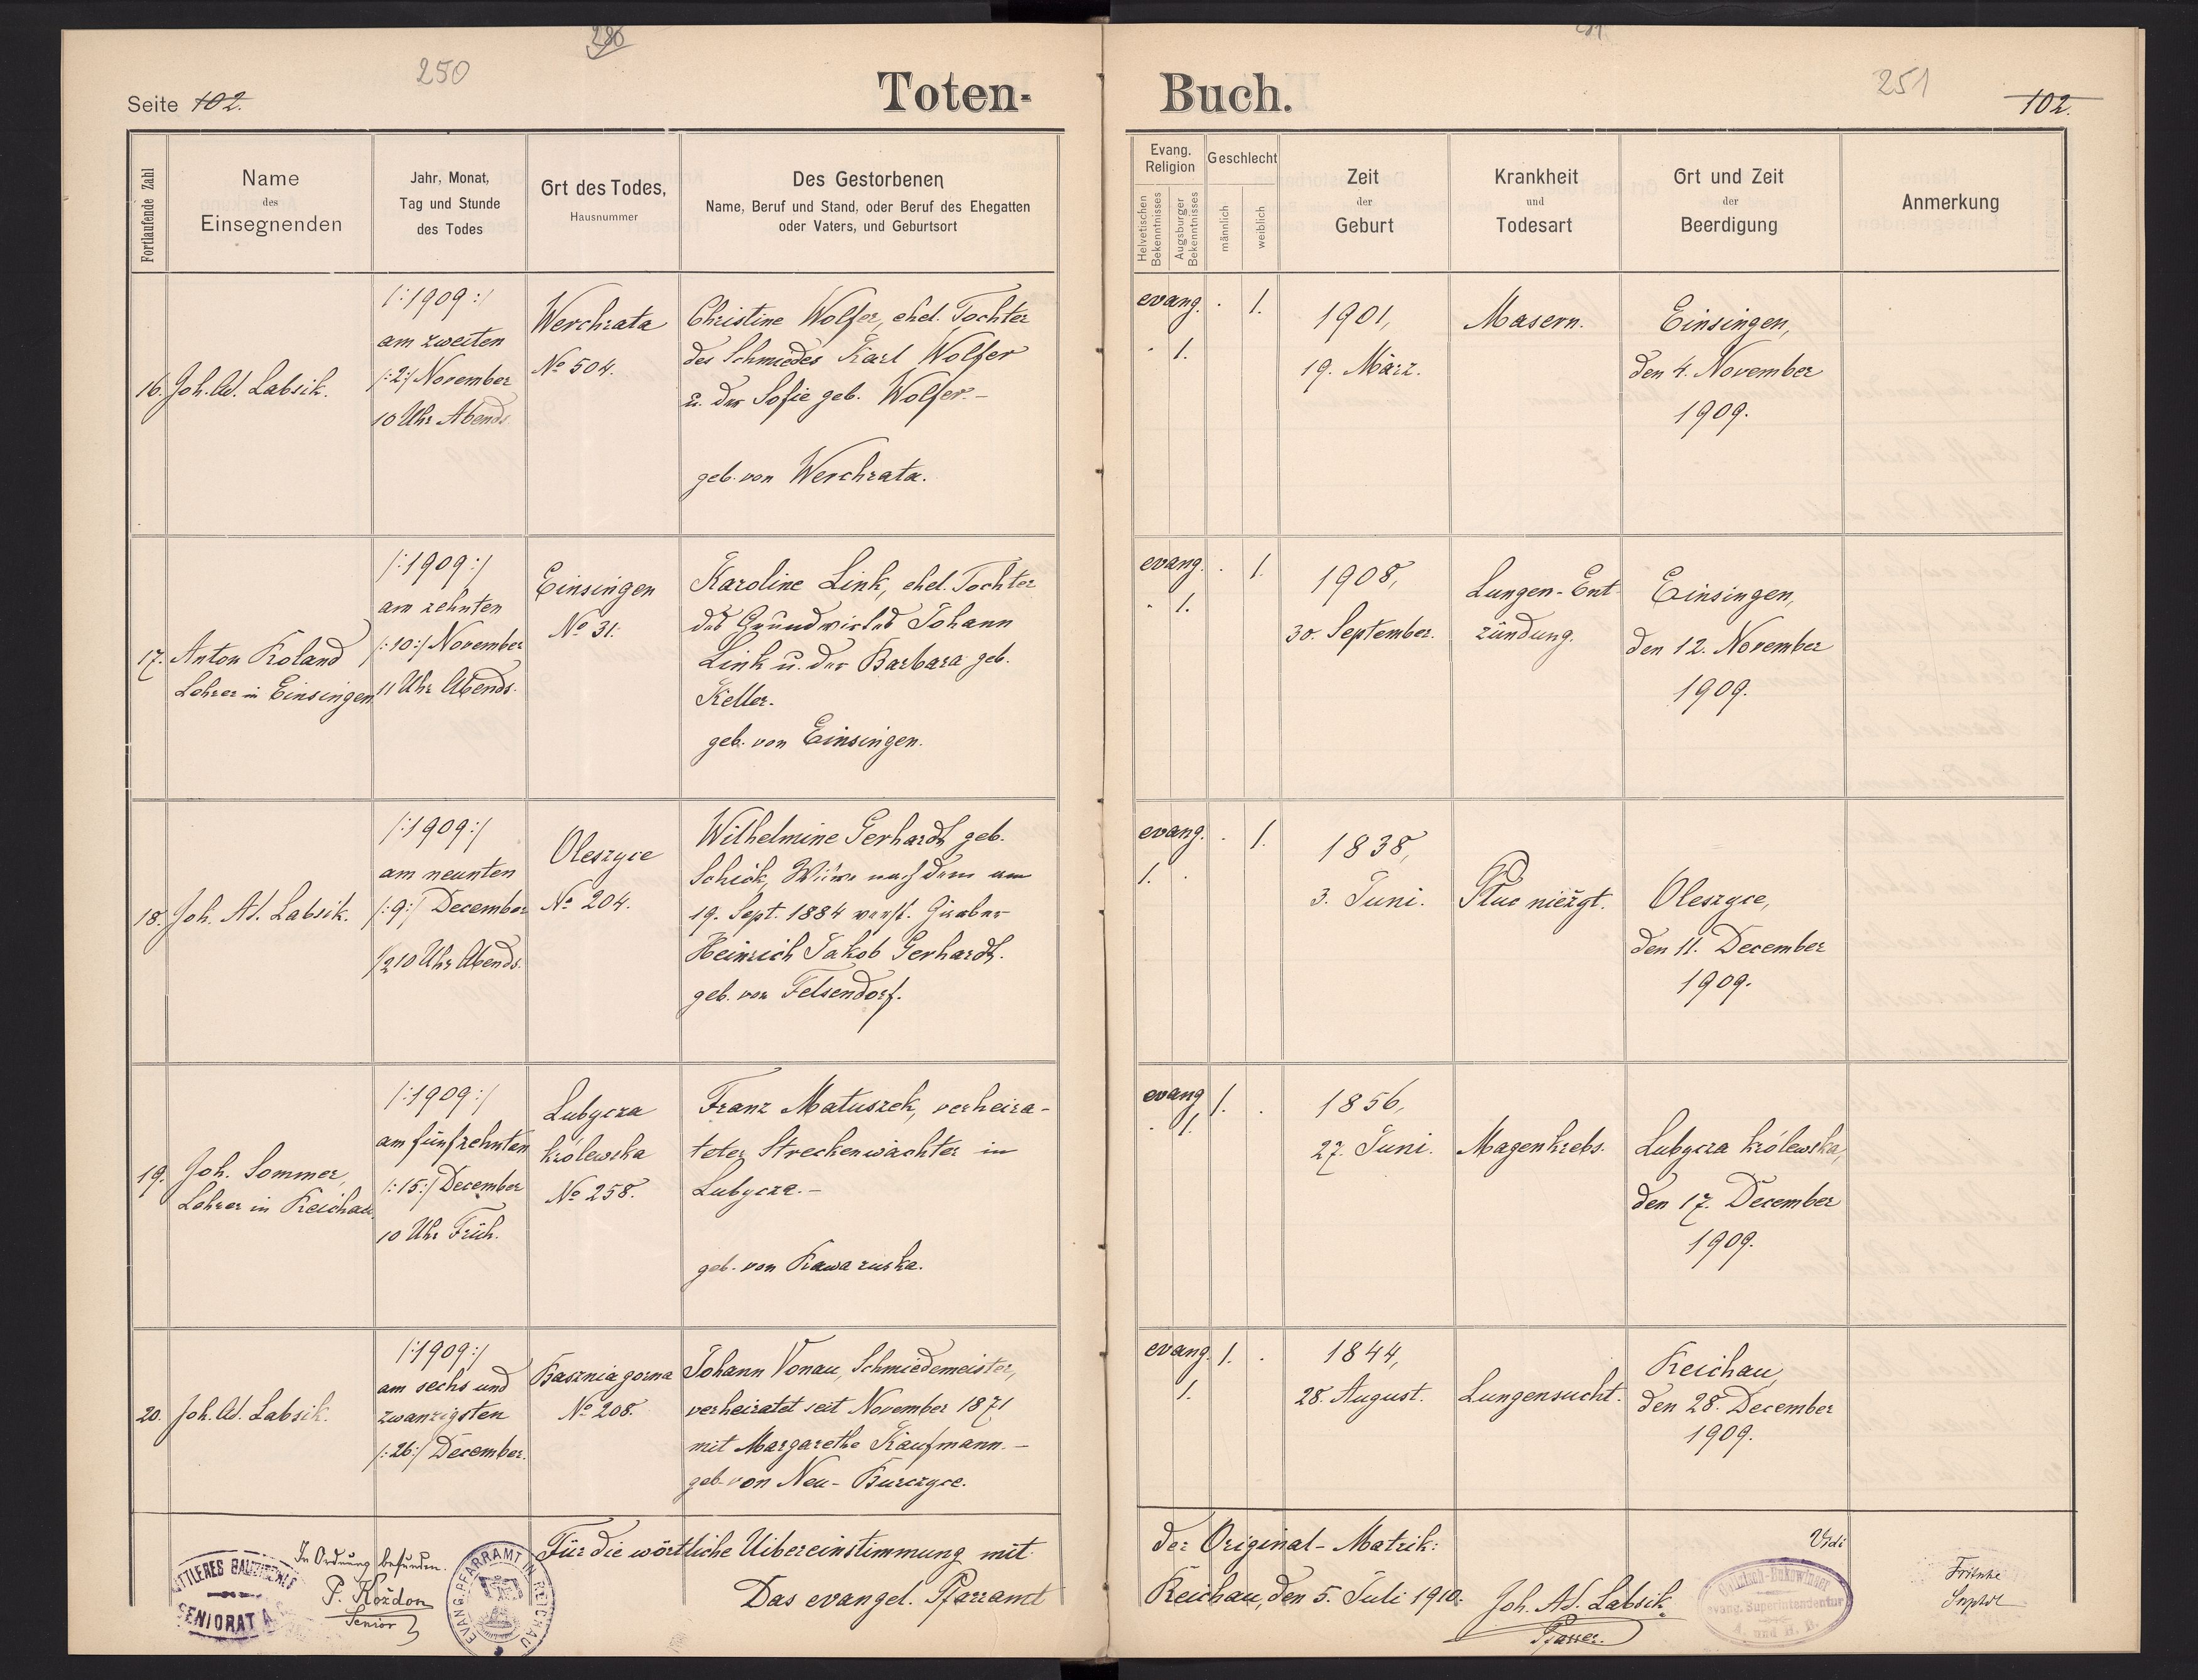 286
250
Seite 102.
Toten-
Fortlaufende Zahl
Name
des
Einsegnenden
Jahr, Monat,
Tag und Stunde
des Todes
Ort des Todes,
Hausnummer
Des Gestorbenen
Name, Beruf und Stand, oder Beruf des Ehegatten
oder Vaters, und Geburtsort
16. Joh. Ad. Labsik.
/:1909:/
am zweiten
/:2:/ November
10 Uhr Abends.
Werchrata
No 504.
Christine Wolfer, ehel. Tochter
des Schmiedes Karl Wolfer
u. der Sofie geb. Wolfer.-
geb. von Werchrata.
17. Anton Roland
Lehrer in Einsingen
/:1909:/
am zehnten
/:10:/ November
11 Uhr Abends.
Einsingen
No 31.
Karoline Link, ehel. Tochter
des Grundwirtes Johann
Link u. der Barbara geb.
Keller.
geb. von Einsingen.
18. Joh. Ad. Labsik.
/:1909:/
am neunten
/:9:/ December
1/2 10 Uhr Abends.
Oleszyce
No 204.
Wilhelmine Gerhardt geb.
Schick, Witwe nach dem am
19. Sept. 1884 verst.
Heinrich Jakob Gerhardt.
geb. von Felsendorf.
19. Joh. Sommer,
Lehrer in Reichau.
/:1909:/
am fünfzehnten
/:15:/ December
10 Uhr Früh.
Lubycza
królewska
No 258.
Franz Matuszek, verheira-
teter Streckenwächter in
Lubycza.-
geb. von Rawa ruska.
20. Joh. Ad. Labsik.
/:1909:/
am sechs und
zwanzigsten
/:26:/ December.
Basznia gorna
No 208.
Johann Vonau, Schmiedemeister,
verheiratet seit November 1871
mit Margarethe Kaufmann.-
geb. von Neu-Burczyce.
In Ordnung befunden.
P. Kożdon
Senior
SENIORAT A.
EVANG. PFARRAMT IN REICHAU
Für die wörtliche Uibereinstimmung mit
Das evangel. Pfarramt
Buch.
251
102.
Evang.
Religion
Helvetischen
Bekenntnisses
Augsburger
Bekenntnisses
Geschlecht
männlich
weiblich
Zeit
der
Geburt
Krankheit
und
Todesart
Ort und Zeit
der
Beerdigung
Anmerkung
evang. . 1.
. 1.
1901,
19. März.
Masern.
Einsingen,
den 4. November
1909.
evang. . 1.
. 1.
1908,
30. September.
Lungen-Ent
zündung.
Einsingen,
den 12. November
1909.
evang. . 1.
1. .
1838,
3. Juni.
Płuc nieżyt.
Oleszyce,
den 11. December
1909.
evang 1. .
. 1.
1856,
27. Juni.
Magenkrebs.
Lubycza królewska,
den 17. December
1909.
evang. 1. .
1.
1844,
28. August.
Lungensucht.
Reichau,
den 28. December
1909.
der Original-Matrik:
Reichau, den 5. Juli 1910.
Joh. Ad. Labsik
Pfarrer.
Vidi
Galizisch-Bukowinaer
evang. Superintendentur
A. und H. B.
Fritsche
Suptdt